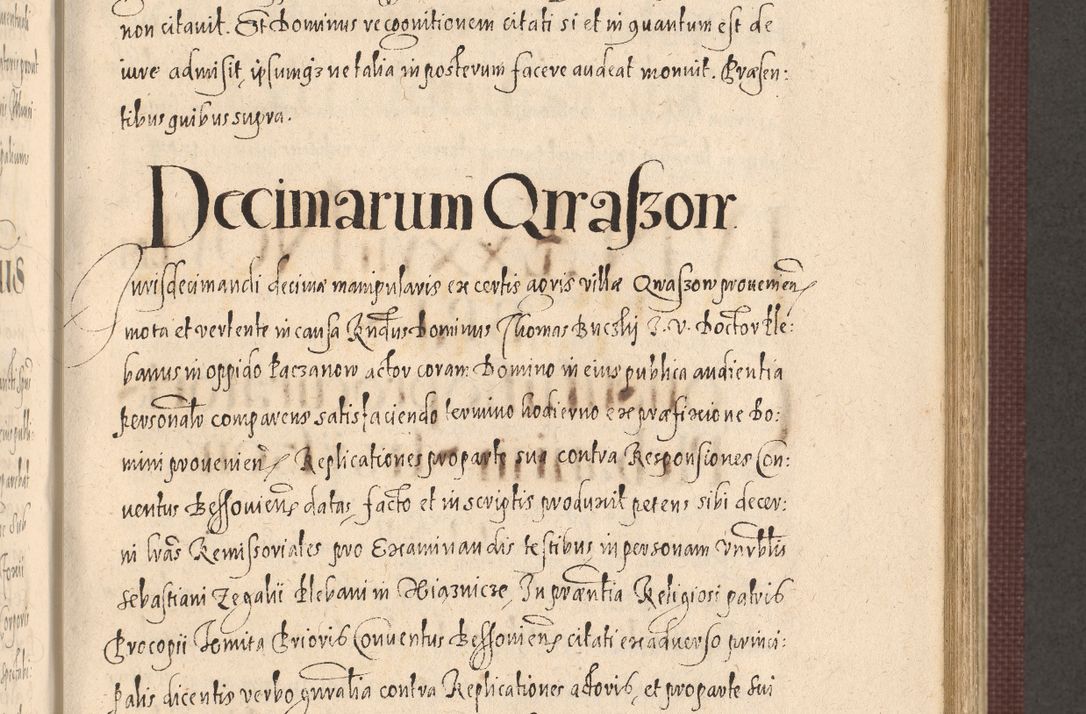 non citavit. Et Dominus recognitionem citati si et in quantum est de
iure admisit, ipsumqз ne talia in posterum facere audeat monuit. Præsen:
tibus quibus supra.
Decimarum Qwaszow
Iurisdecimandi decimæ manipularis ex certis agris villæ Qwaszow provenien
mota et vertente in causa Rndus Dominus Thomas Buczkij I. V. Doctor Ple:
banus in oppido Paczanow actor coram Domino in eius publica audientia
personalr comparens satisfaciendo termino hodierno ex præfixione Do:
mini provenien Replicationes pro parte sua contra Responsiones Con:
ventus Bessovien datas facto et in scriptis produxit petens sibi decer:
ni lras Remissoriales pro Examinandis testibus in personam Vnrblis
Sebastiani Zegalii Plebani in Xiąznicze, In præntia Religiosi patris
Procopii Prioris Conventus Bessovien citati ex adverso princi:
palis dicentis verbo gnralia contra Replicationes actoris, et pro parte sui